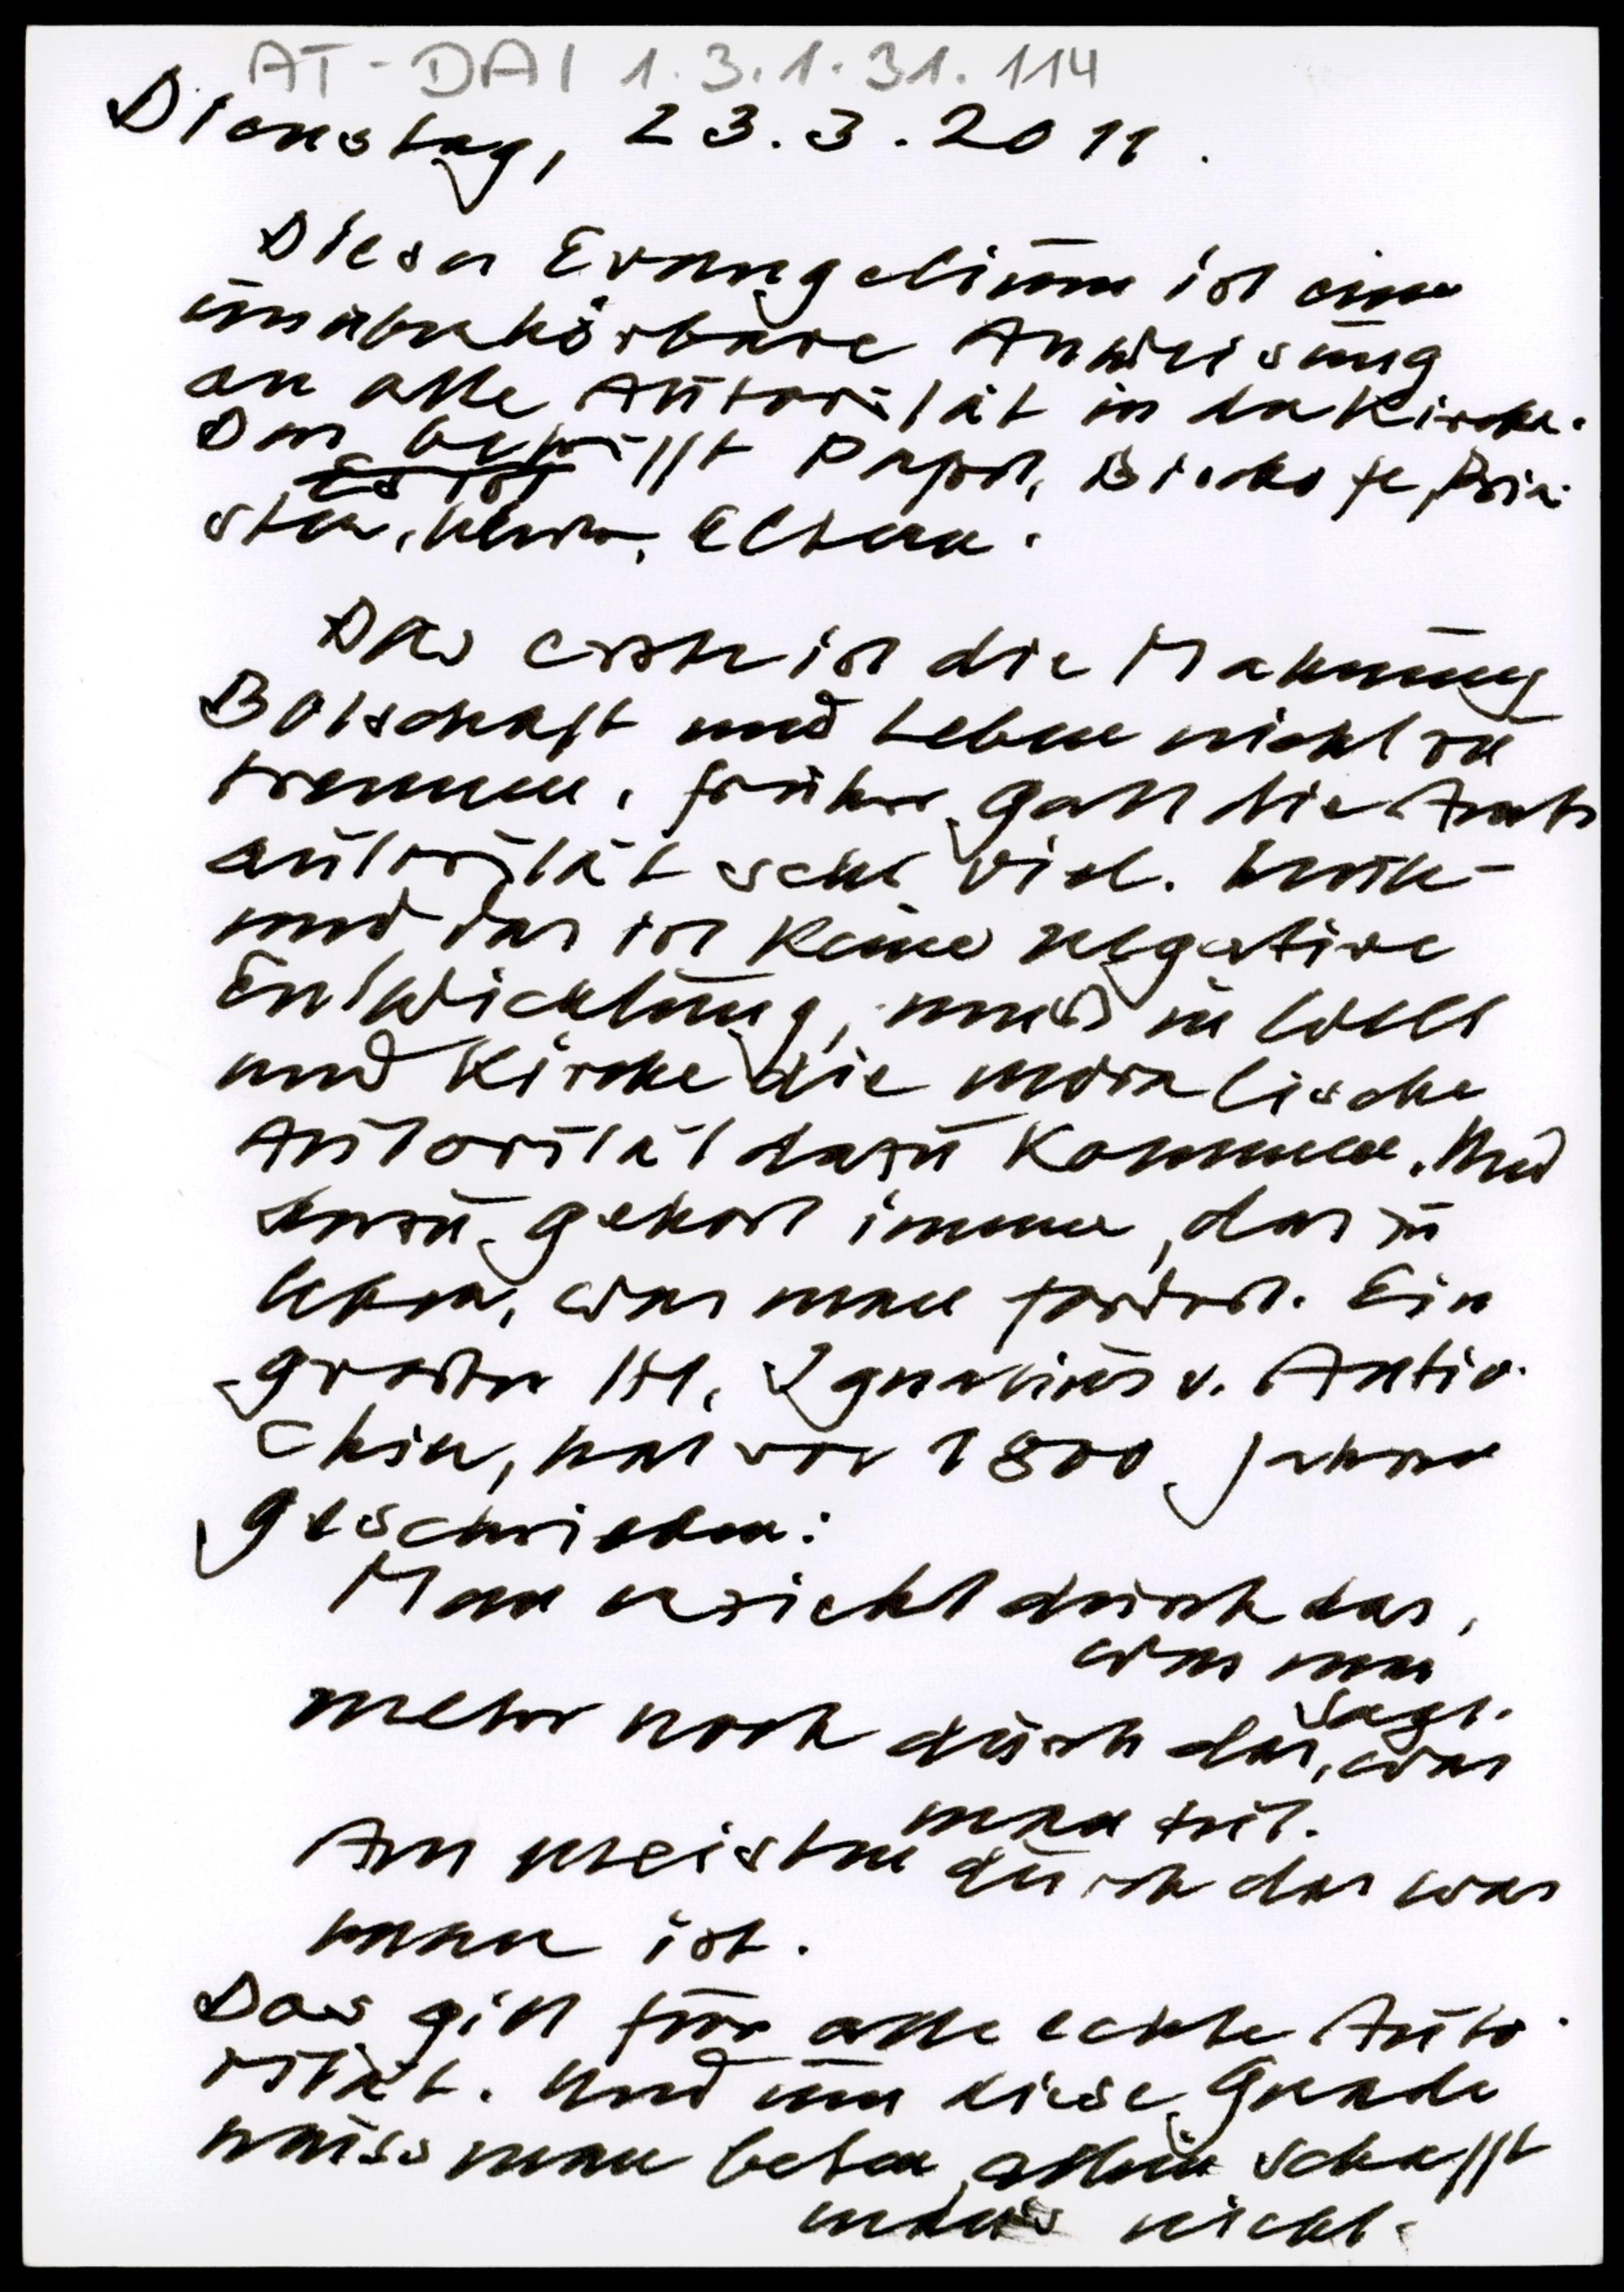 AT-DAI 1.3.1.31.114
Dienstag, 23.3.2011.
Dieses Evangelium ist eine
unüberhörbare Anweisung
an alle Autorität in der Kirche.
Das betrifft Papst, Bischöfe, Prie-
Es ist
ster, Lehrer, Eltern.
Das erste ist die Mahnung
Botschaft und Leben nicht zu
trennen. früher galt die Amts
autorität sehr viel. heute -
und das ist keine negative
Entwicklung, muß in Welt
und Kirche die moralische
Autorität dazu kommen. Und
dazu gehört immer, das zu
leben, was man fordert. Ein
großer Hl. Ignatius v. Antio-
chien, hat vor 1800 Jahren
geschrieben:
Man erzieht durch das,
was man
sagt.
mehr noch durch das, was
man tut.
Am meisten durch das was
man ist.
Das gilt für alle echte Auto-
rität. Und um diese Gnade
muss man beten, allein schafft
man's nicht.